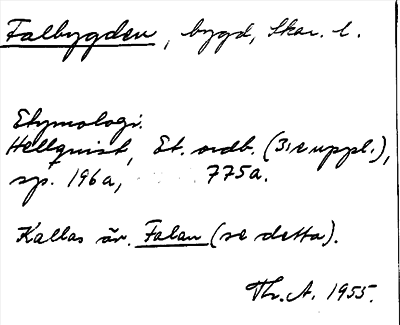 Falbygden, bygd, Skar. l.
Etymologi.
Hellquist, Et. ordb. (3:e uppl.),
sp. 196a, 775a.
Kallas äv. Falan (se detta).
Th. A. 1955.